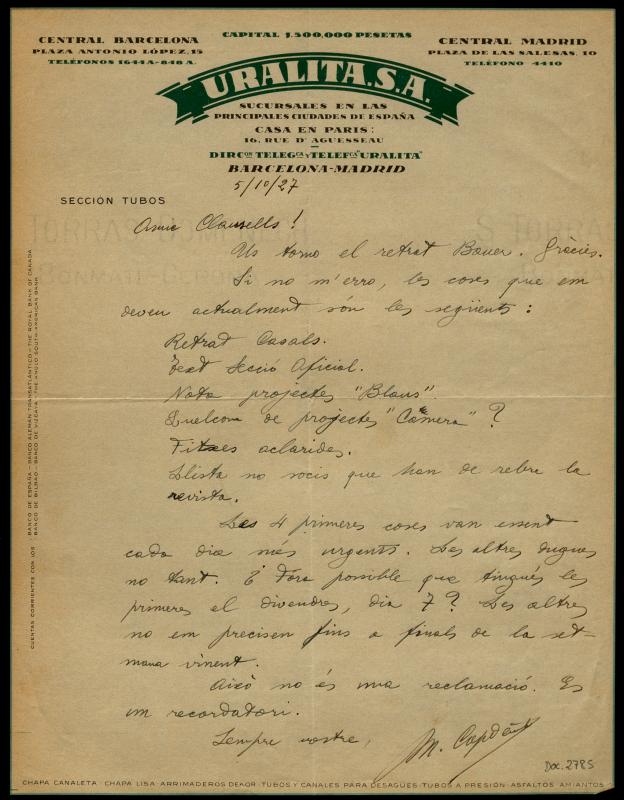 CENTRAL BARCELONA
PLAZA ANTONIO LÓPEZ, 15
TELÉFONOS 1644 A-848 A.
CAPITAL 1.500,000 PESETAS
CENTRAL MADRID
PLAZA DE LAS SALESAS, 10
TELÉFONO 4410
URALITA, S.A.
SUCURSALES EN LAS
PRINCIPALES CIUDADES DE ESPAÑA
CASA EN PARIS:
16, RUE D'AGUESSEAU
DIRCON TELEGCA Y TELEFCA "URALITA"
BARCELONA-MADRID
5/10/27
SECCIÓN TUBOS
Amic Clausells!
Us torno el retrat Bauer. Gràcies.
Si no m'erro, les coses que em
deveu actualment són les següents:
Retrat Casals.
Text Secció Oficial.
Nota projectes "Blaus".
Quelcom de projectes "Camera"?
Fitxes aclarides.
Llista no socis que han de rebre la
revista.
Les 4 primeres coses van essent
cada dia més urgents. Les altres dugues
no tant. Fora possible que tingués les
primeres el divendres, dia 7? Les altres
no em precisen fins a finals de la set-
mana vinent.
Això no és una reclamació. Es
un recordatori.
Sempre vostre,
M. Capdevila
Doc. 2785
CUENTAS CORRIENTES CON LOS: BANCO DE ESPAÑA - BANCO ALEMÁN TRANSATLÁNTICO - THE ROYAL BANK OF CANADA
BANCO DE BILBAO - BANCO DE VIZCAYA - THE ANGLO SOUTH AMERICAN BANK
CHAPA CANALETA - CHAPA LISA - ARRIMADEROS DEKOR - TUBOS Y CANALES PARA DESAGÜES - TUBOS A PRESIÓN - ASFALTOS AMIANTOS